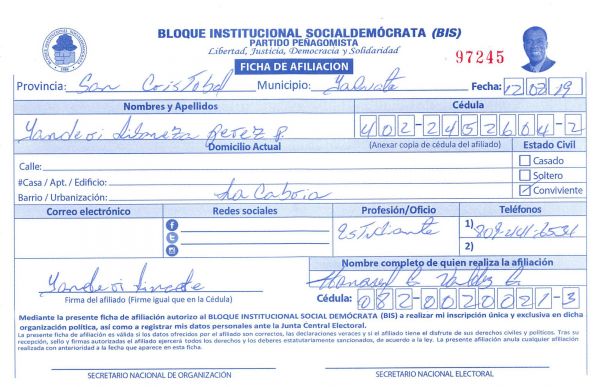 BLOQUE INSTITUCIONAL SOCIALDEMÓCRATA (BIS)
PARTIDO PEÑAGOMISTA
Libertad, Justicia, Democracia y Solidaridad
97245
FICHA DE AFILIACION
Provincia: San Cristobal Municipio: Fecha: 12 02 19
Nombres y Apellidos Cédula
Perez P. 402-2452604-2
Domicilio Actual (Anexar copia de cédula del afiliado) Estado Civil
Calle: Casado
#Casa / Apt. / Edificio: Soltero
Barrio / Urbanización: La Cabria Conviviente
Correo electrónico Redes sociales Profesión/Oficio Teléfonos
Estudiante 1) 809-441-6531
2)
Nombre completo de quien realiza la afiliación
Valdez
Firma del afiliado (Firme igual que en la Cédula) Cédula: 082-0020021-3
Mediante la presente ficha de afiliación autorizo al BLOQUE INSTITUCIONAL SOCIAL DEMÓCRATA (BIS) a realizar mi inscripción única y exclusiva en dicha
organización política, así como a registrar mis datos personales ante la Junta Central Electoral.
La presente ficha de afiliación es válida si los datos ofrecidos por el afiliado son correctos, las declaraciones veraces y si el afiliado tiene el disfrute de sus derechos civiles y políticos. Tras su
recepción, sello y firmas autorizadas el afiliado ejercerá todos los derechos y los deberes estatutariamente sancionados, de acuerdo a la ley. La presente afiliación anula cualquier afiliación
realizada con anterioridad a la fecha que aparece en esta ficha.
SECRETARIO NACIONAL DE ORGANIZACIÓN SECRETARIO NACIONAL ELECTORAL